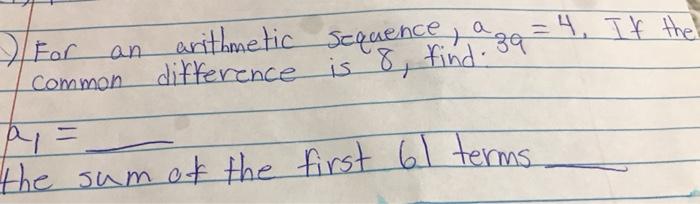 ) For an arithmetic sequence, a39 = 4. If the
common difference is 8, find.
a1 = ___
the sum of the first 61 terms ___